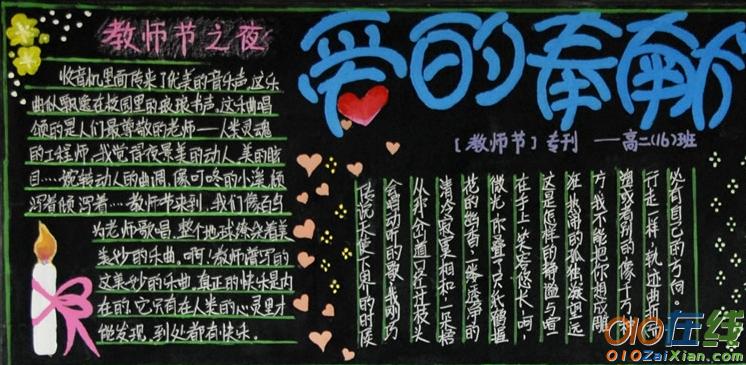 教师节之夜
收音机里面传来了优美的音乐声,这乐
曲似飘逸在校园里的琅琅书声,这乐曲唱
颂的是人们最尊敬的老师——人类灵魂
的工程师。我觉得夜景美的动人,美的眩
目……婉转动人的曲调,像叮咚的小溪,倾
泻着倾泻着……教师节来到,我们像百鸟
为老师歌唱,整个地球缭绕着美
美妙的乐曲。啊!教师谱写的
这美妙的乐曲,真正的快乐是内
在的,它只有在人类的心灵里才
能发现,到处都有快乐。
爱的奉献
[教师节]专刊 ——高二(16)班
必有自己的方向。
行走一样,轨迹曲
方。我不能把你想成
在热闹的孤独,张望远
这是怎样的静谧与喧
在手上,笑容悠长,啊,
微光。你叠了只纸鹤握
花的幽香,一张洁净的
清与寂寞相和,一朵
从我分道口径过枝头
会唱动听的歌,我刚巧
传说天使下凡界的时候
010在线
010ZaiXian.com